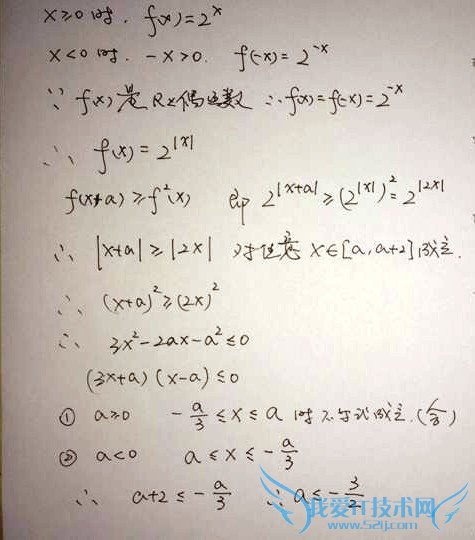 x≥0时. f(x)=2^x
x<0时. -x>0. f(-x)=2^-x
∵ f(x)是R上偶函数 ∴f(x)=f(-x)=2^-x
∴ f(x)=2^|x|
f(x+a)≥f²(x) 即 2^|x+a|≥(2^|x|)²=2^|2x|
∴ |x+a|≥|2x| 对任意 x∈[a,a+2]成立.
∴ (x+a)²≥(2x)²
∴ 3x²-2ax-a²≤0
(3x+a)(x-a)≤0
① a≥0 -a/3≤x≤a 时不等式成立.
② a<0 a≤x≤-a/3
∴ a+2≤-a/3 ∴ a≤-3/2
我爱IT技术网
www.52ij.com